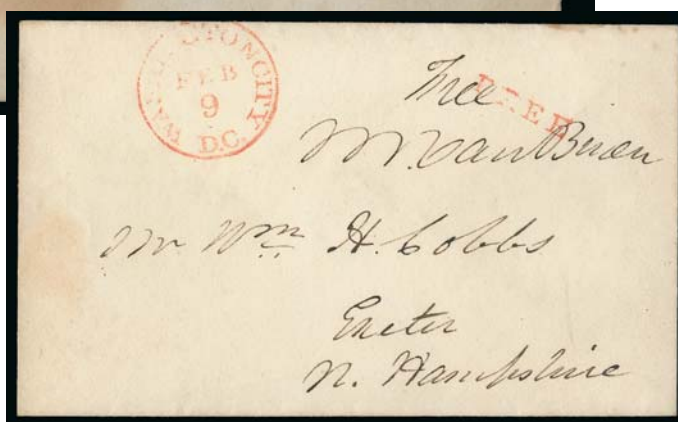 WASHINGTON CITY
FEB
9
D.C.
Free
FREE
M. Van Buren
Mr Wm H. Cobbs
Exeter
N. Hampshire